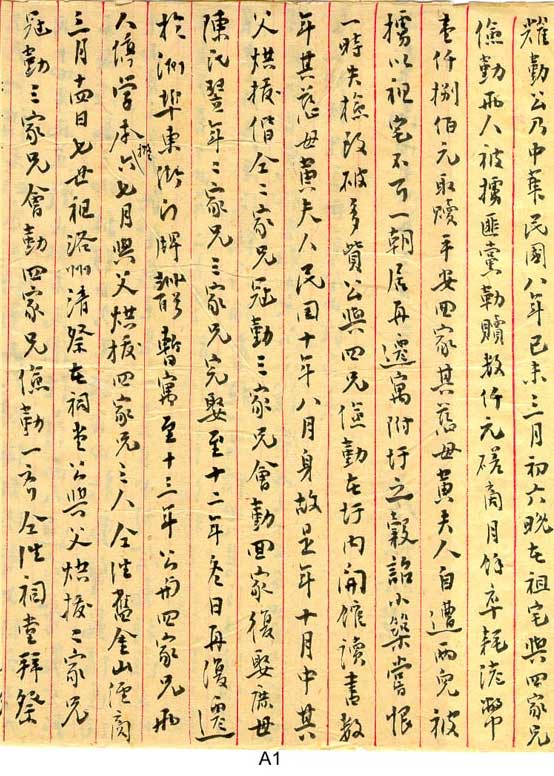 耀勤公乃中華民國八年己未三月初六晚在祖宅與四家兄
儉勤兩人被擄匪黨勒贖数仟元磋商月餘卒耗港幣
壱仟捌佰元取贖平安回家其慈母黄夫人自遭兩兒被
擄以祖宅不可一朝居再遷寓附圩之穀詒小築嘗恨
一時失檢致破多貲公與四兄儉勤在圩内開馆讀書数
年其慈母黄夫人民国十年八月身故是年十月中其
父烘援偕仝二家兄冠勤三家兄會勤回家復娶庶母
陳氏翌年二家兄三家兄完娶至十二年冬日再復遷
於洲埠東街門牌號暫寓至十三年公與四家兄兩
人停学本年六七月與父烘援四家兄三人仝往舊金山經商
三月十四日七世祖洛洲清祭在祠堂公與父烘援二家兄
冠勤三家兄會勤四家兄儉勤一齐仝往祠堂拜祭
A1